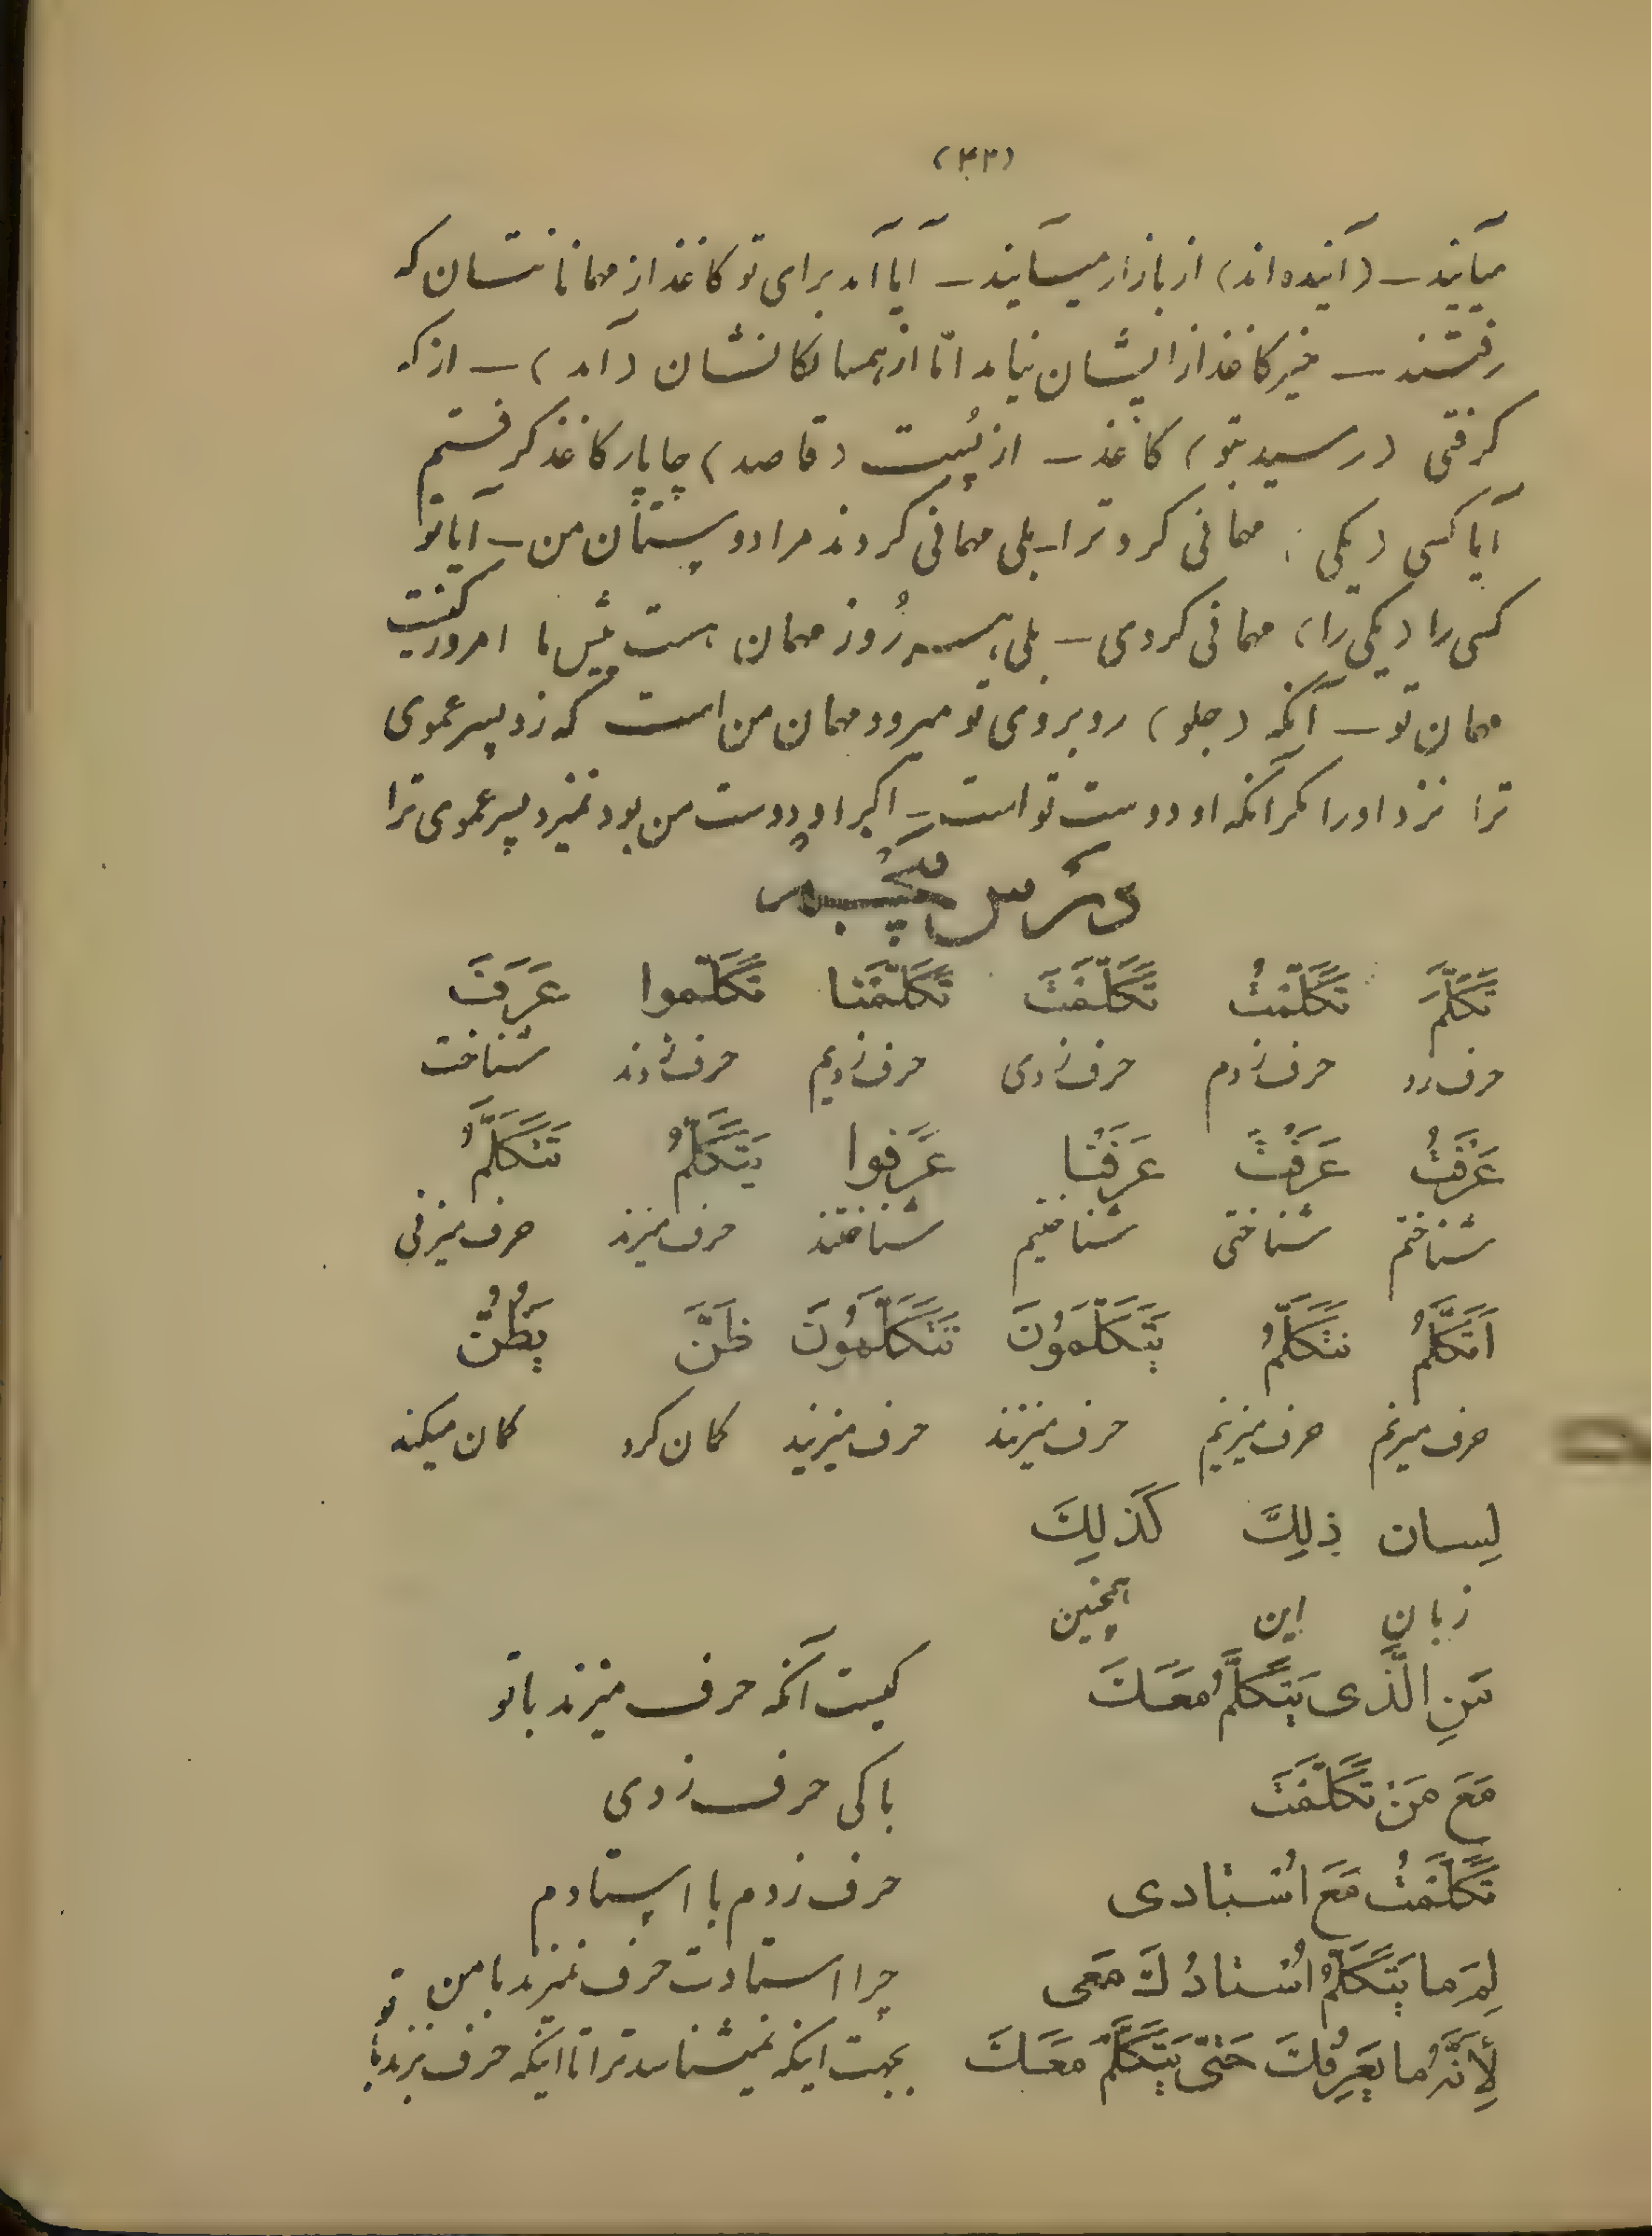 (۴۳)
میآیند – (آینده‌اند) از بازار میآیند – آیا آمد برای تو کاغذ از مهمانانتان که
رفتند – خیر کاغذ از ایشان نیامد امّا از همسایگانشان (آمد) – از که
گرفتی (رسید بتو) کاغذ – از پُست (قاصد) چاپار کاغذ گرفتم
آیا کسی (یکی) مهمانی کرد ترا – بلی مهمانی کردند مرا دوستان من – آیا تو
کسی را (یکی را) مهمانی کردی – بلی، سه رُوز مهمان هست پیش ما امروز کیست
مهمان تو – آنکه (جلو) روبروی تو میرود مهمان من است که زد پسر عموی
ترا نزد او را مگر آنکه او دوست تو است – اگر او دوست من بود نمیزد پسر عموی ترا
درس پنجم
تَكَلَّمَ تَكَلَّمْتُ تَكَلَّمْتَ تَكَلَّمْنا تَكَلَّموا عَرَفَ
حرف زد حرف زدم حرف زدی حرف زدیم حرف زدند شناخت
عَرَفْتُ عَرَفْتَ عَرَفْنا عَرَفوا يَتَكَلَّمُ تَتَكَلَّمُ
شناختم شناختی شناختیم شناختند حرف میزند حرف میزنی
اَتَكَلَّمُ نَتَكَلَّمُ يَتَكَلَّمُونَ تَتَكَلَّمُونَ ظَنَّ يَظُنُّ
حرف میزنم حرف میزنیم حرف میزنند حرف میزنید گمان کرد گمان میکند
لِسان ذلِكَ كَذلِكَ
زبان این همچنین
مَنِ الَّذی يَتَكَلَّمُ مَعَكَ کیست آنکه حرف میزند با تو
مَعَ مَنْ تَكَلَّمْتَ با کی حرف زدی
تَكَلَّمْتُ مَعَ اُسْتادی حرف زدم با استادم
لِمَ ما يَتَكَلَّمُ اُسْتادُكَ مَعی چرا استادت حرف نمیزند با من
لِأَنَّهُ ما يَعْرِفُكَ حَتّی يَتَكَلَّمَ مَعَكَ بجهت اینکه نمیشناسد ترا تا اینکه حرف بزند با تو